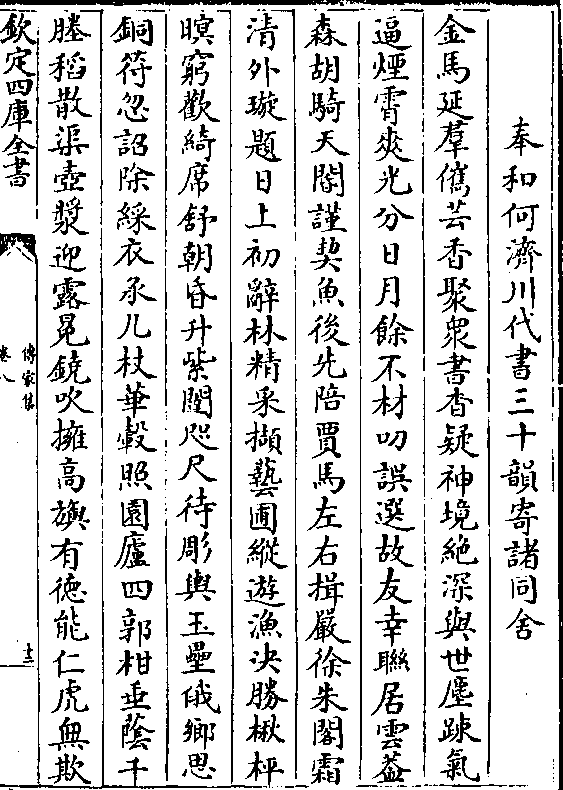 奉和何濟川代書三十韻寄諸同舍
金馬延羣儁芸香聚衆書杳疑神境絶深與世塵踈氣
逼煙霄爽光分日月餘不材叨誤選故友幸聯居雲葢
森胡騎天閽謹契魚後先陪賈馬左右揖嚴徐朱閣霜
清外璇題日上初辭林精采擷藝圃縱遊漁决勝楸枰
暝窮歡綺席舒朝昏升紫闥咫尺待彫輿玉壘俄鄉思
銅符忽詔除綵衣承几杖華轂照園廬四郭柑垂蔭千
塍稻散渠壺漿迎露冕鐃吹擁高旟有德能仁虎無欺
欽定四庫全書
傳家集
卷八
十三